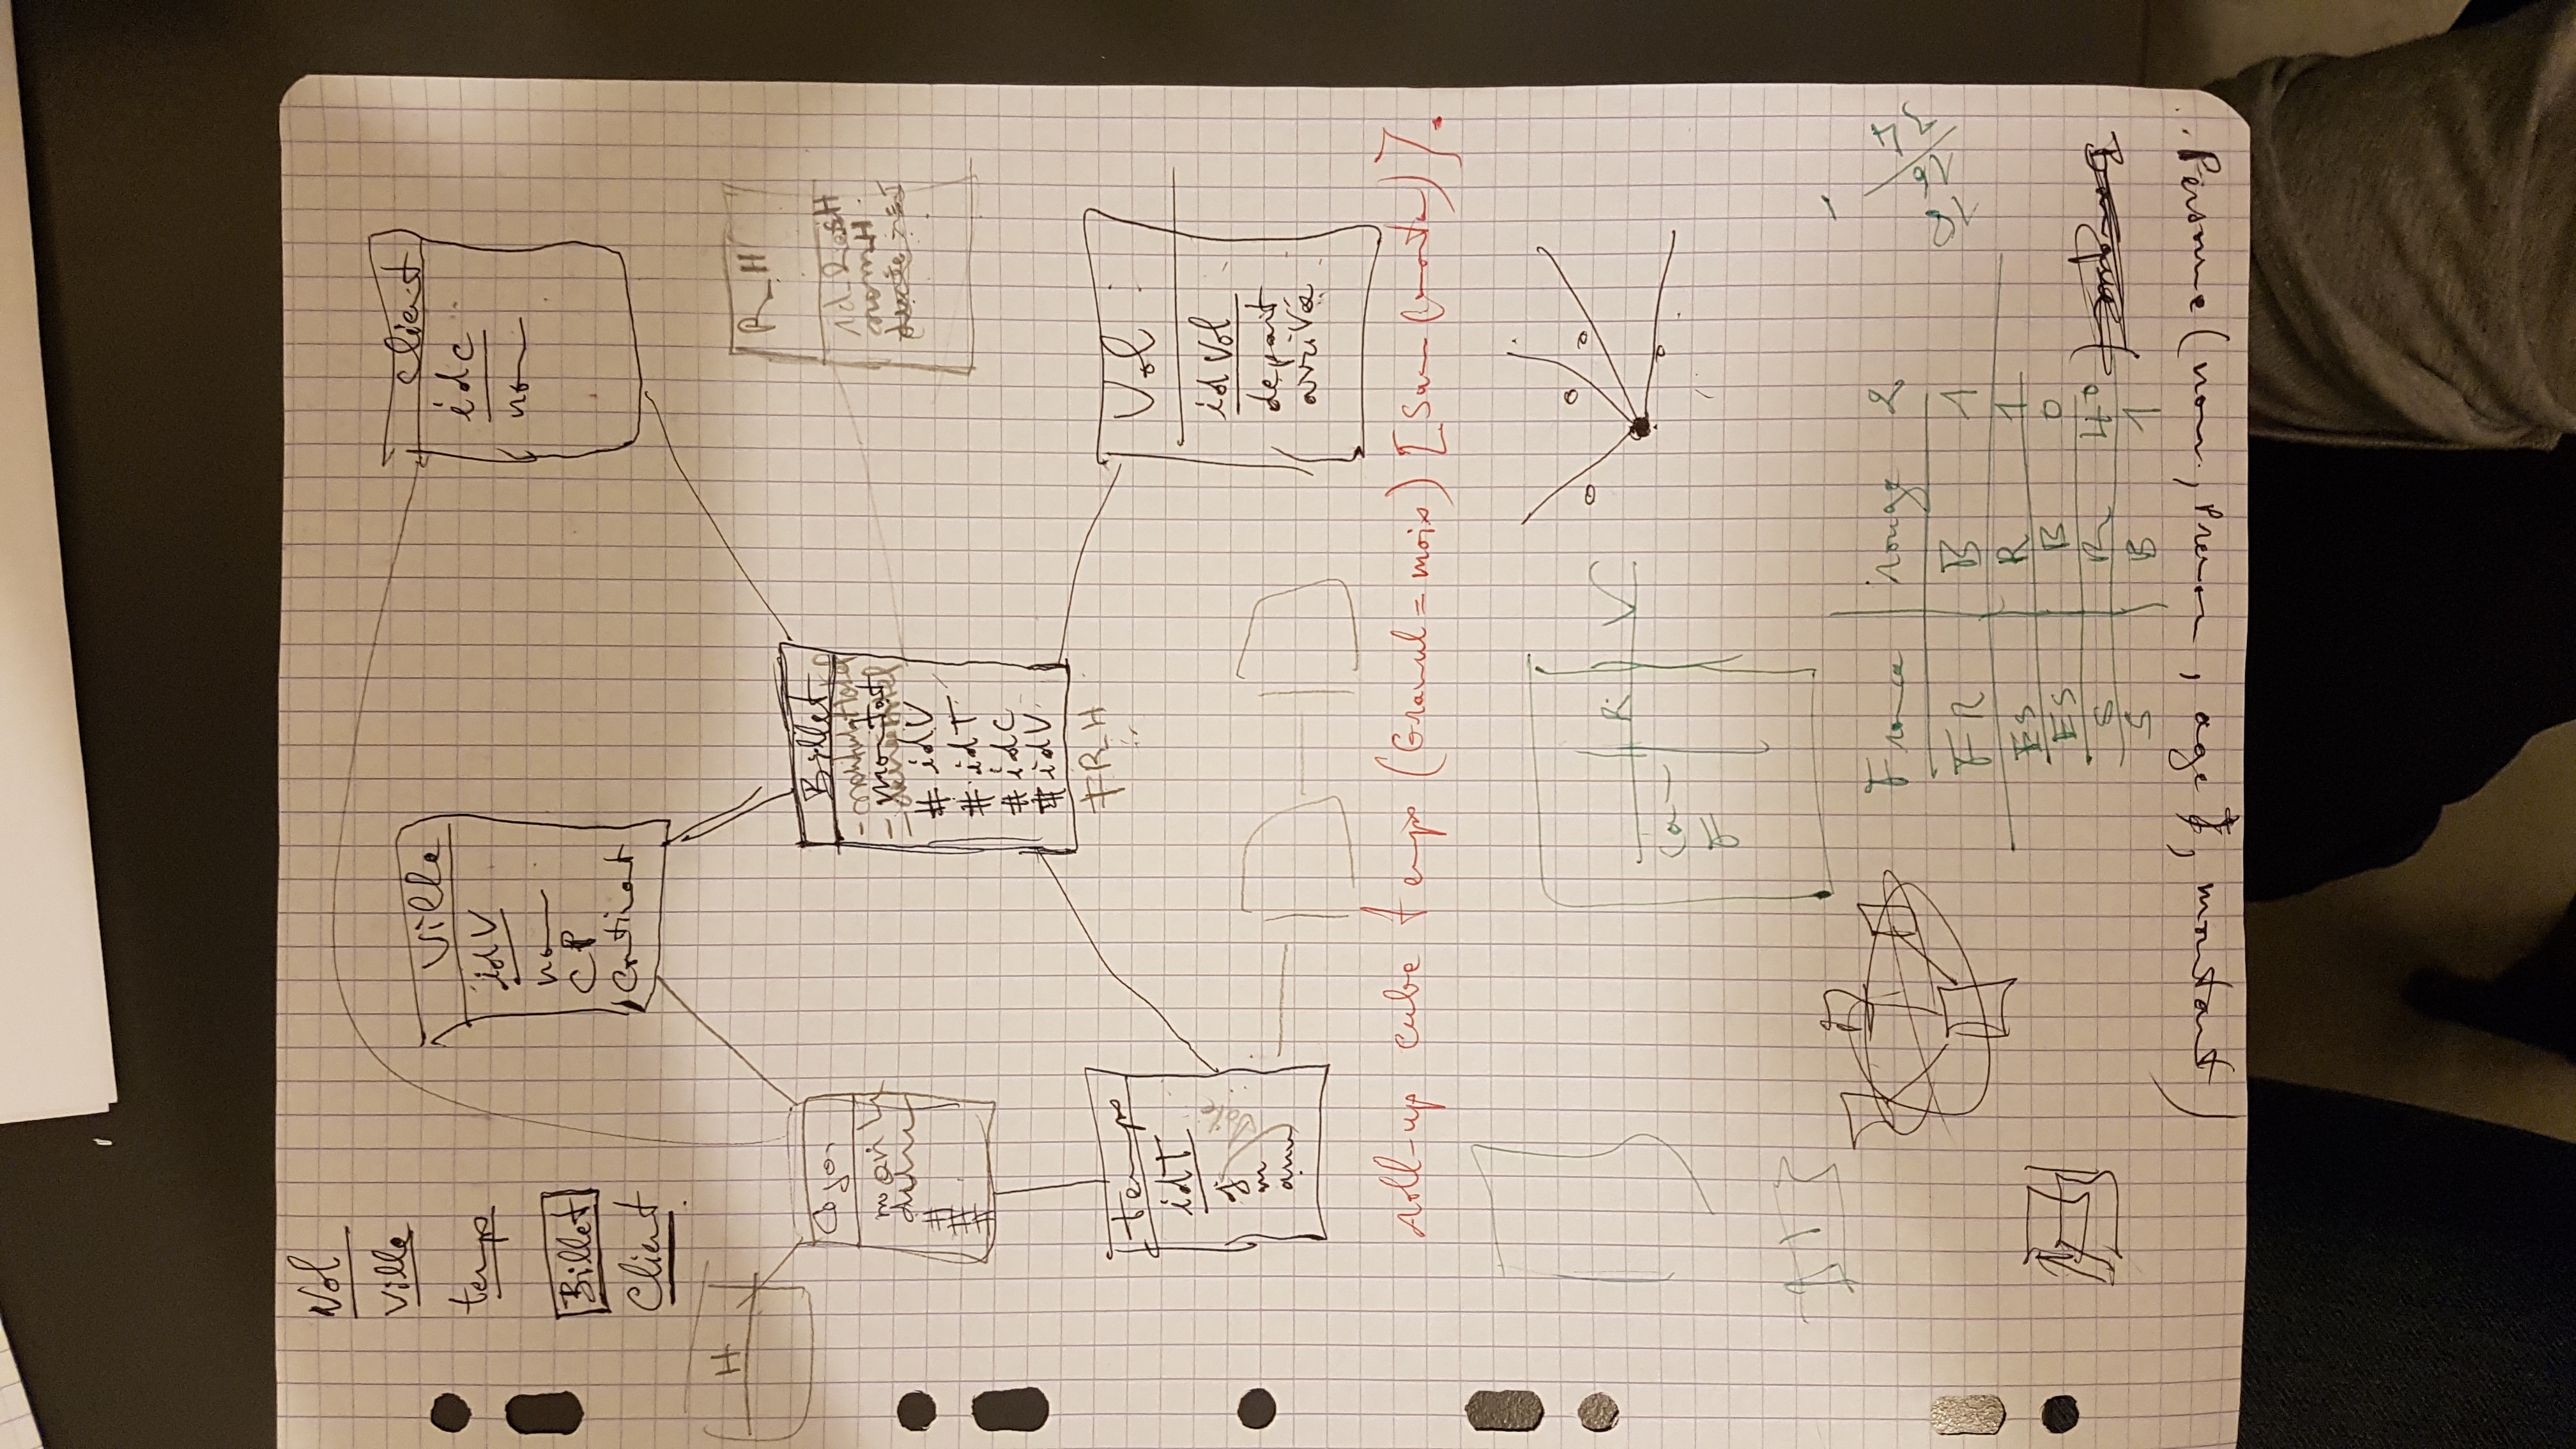 Vol
Ville
temps
Billet
Client
Ville
idV
nom
CP
Continent
Client
idC
nom
H
R_H
nomH
Billet
montant
# idV
# idT
# idC
# idV
# R_H
#
#
#
temps
idT
j
m
ann
Date
Vol
idVol
depart
arrivée
roll-up cube temps (Granul = mois) [Sum (montan)].
R V
Ca
F
France rouge 2
FR B 1
ES R 1
ES B 0
S R 40
S B 1
Personne (nom, Prenom, age, montant)